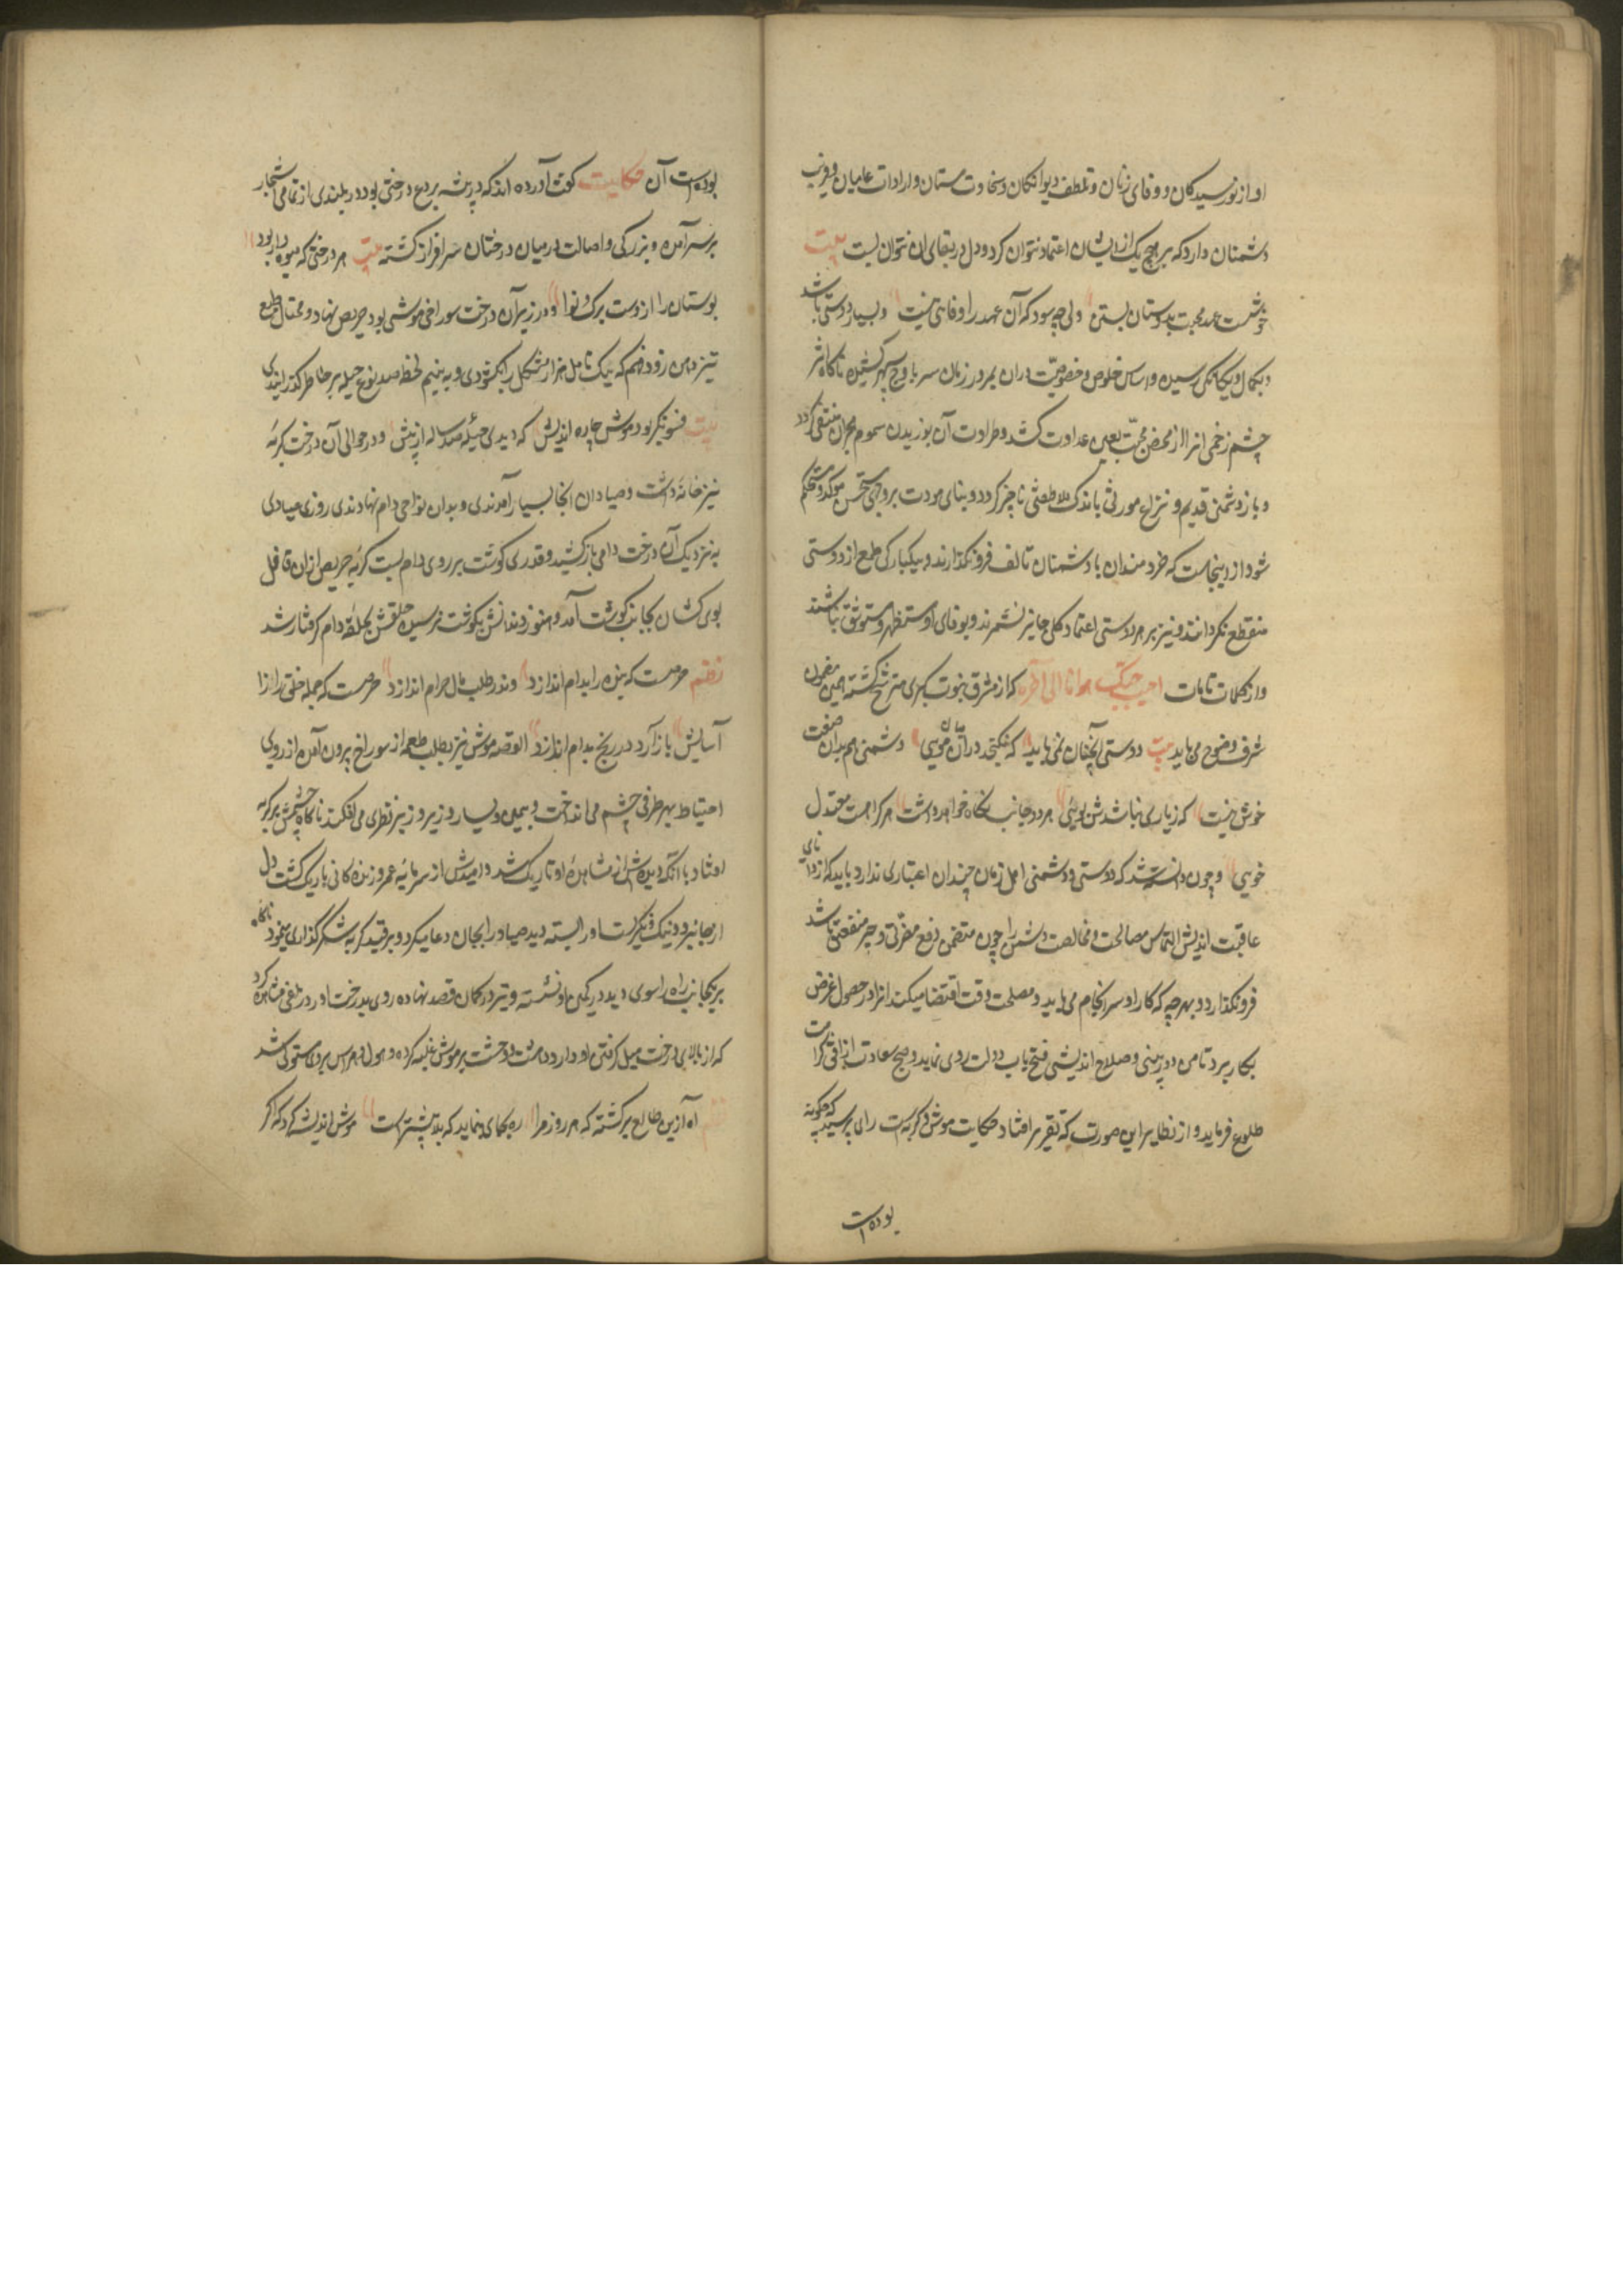 او از نورسیدگان و وفای زنان و تلطف دیوانگان و سخاوت مستان و ارادات عامیان و فریب
دشمنان دارد که بر هیچ یک از ایشان اعتماد نتوان کرد و دل در بقای ان نتوان بست بیت
خوشست عهد محبت بدوستان بستن ولی چه سود که آن عهد را وفائی نیست و بسیار دوستی باشد
و بکمال و یگانگی رسیده و اساس خلوص و خصوصیت دران بمرور زمان سر باوج سپهر کشیده ناگاه اثر
چشم زخمی انرا از محض محبت بعین عداوت کشد و طرادت آن بوزیدن سموم هجران منتفی گردد
و باز دشمنی قدیم و نزاع موروثی باندک ملاطفتی ناچیز گردد و بنای مودت بر وجهی مستحسن موکد و مستحکم
شود از اینجاست که خردمندان با دشمنان تالف فرو نگذارند و بیکبارگی طمع از دوستی
منقطع نگردانند و نیز بر هر دوستی اعتماد کلی جایز نشمرند و بوفای او مستظهر و مستوثق نباشند
و از کلمات تامات احبب حبیبک هونا ما الی آخره که از مشرق نبوت کبری مترشح گشته همین مضمون
شرف وضوح می یابد بیت دوستی آنچنان نمی باید که نگنجد در آن میان مویی دشمنی هم بدان صفت
خوش نیست که زیاری نباشدش بویی هر دو جانب نگاه خواهد داشت هر کرا هست معتدل
خویی و چون دانسته شد که دوستی و دشمنی اهل زمان چندان اعتباری ندارد باید که دانای
عاقبت اندیش التماس مصالحت و مخالصت دشمن را چون متضمن دفع مضرتی و جر منفعتی باشد
فرو نگذارد و بهر چه که کار او سرانجام می یابد و مصلحت وقت اقتضا میکند انرا در حصول غرض
بکار برد تا من دوربینی و صلاح اندیشی فتح باب دولت روی نماید و صبح سعادت از افق کرامت
طلوع فرماید و از نظایر این صورت که تقریر افتاد حکایت موش و گربه است رای پرسید که چگونه
بوده است
بوده است آن حکایت گفت آورده اند که در بیشه بردع درختی بود در بلندی از تمامی اشجار
بر سر آمده و بزرگی و اصالت در میان درختان سرافراز گشته بیت هر درختی که میوه دار بود
بوستان را ازوست برگ و نوا و در زیر آن درخت سوراخ موشی بود حریص نهاد و محتال طبع
تیز ذهن زود فهم که بیک تامل هزار مشکل را بگشودی و به نیم لحظه صد نوع حیله بر خاطر گذرانیدی
بیت فسونگر بود موش چاره اندیش که دیدی حیله صد ساله از پیش و در حوالی آن درخت گربه
نیز خانه داشت و صیادان انجا بسیار آمدندی و بدان نواحی دام نهادندی روزی صیادی
به نزدیک آن درخت دامی باز کشید و قدری گوشت بر روی دام بست گربه حریص ازان غافل
بوی کشان بجانب گوشت آمد و هنوز دندانش بگوشت نرسیده حلقش بحلقه دام گرفتار شد
نظم حرصست که بنده را بدام اندازد وندر طلب مال حرام اندازد حرصست که جمله خلق را از
آسایش باز آرد در رنج بدام اندازد القصه موش نیز بطلب طعمه از سوراخ بیرون آمده از روی
احتیاط بهر طرفی چشم می انداخت و بیمین و یسار و زیر و زبر نظری می افکند ناگاه چشمش بر گربه
افتاد با آنکه دیده اش از مشاهده او تاریک شد و امیدش از سرمایه عمر و زندگانی باریک گشت دل
از جا نبرد و نیک در نگریست او را بسته دید صیاد را بجان دعا میکرد و بر قید گربه شکرگذاری مینمود ناگاه
بر یکجانب راه راسوی دید در کمین او نشسته و تیر در کمان قصد نهاده روی بدرخت اورد زاغی مشاهده کرد
که از بالای درخت میل گرفتن او دارد دهشت و وحشت بر موش غلبه کرده و هول و هراس بر وی مستولی شد
آه ازین طالع برگشته که هر روز مرا ره بجای نماید که بلا بیشترست موش اندیشه کرد که اگر